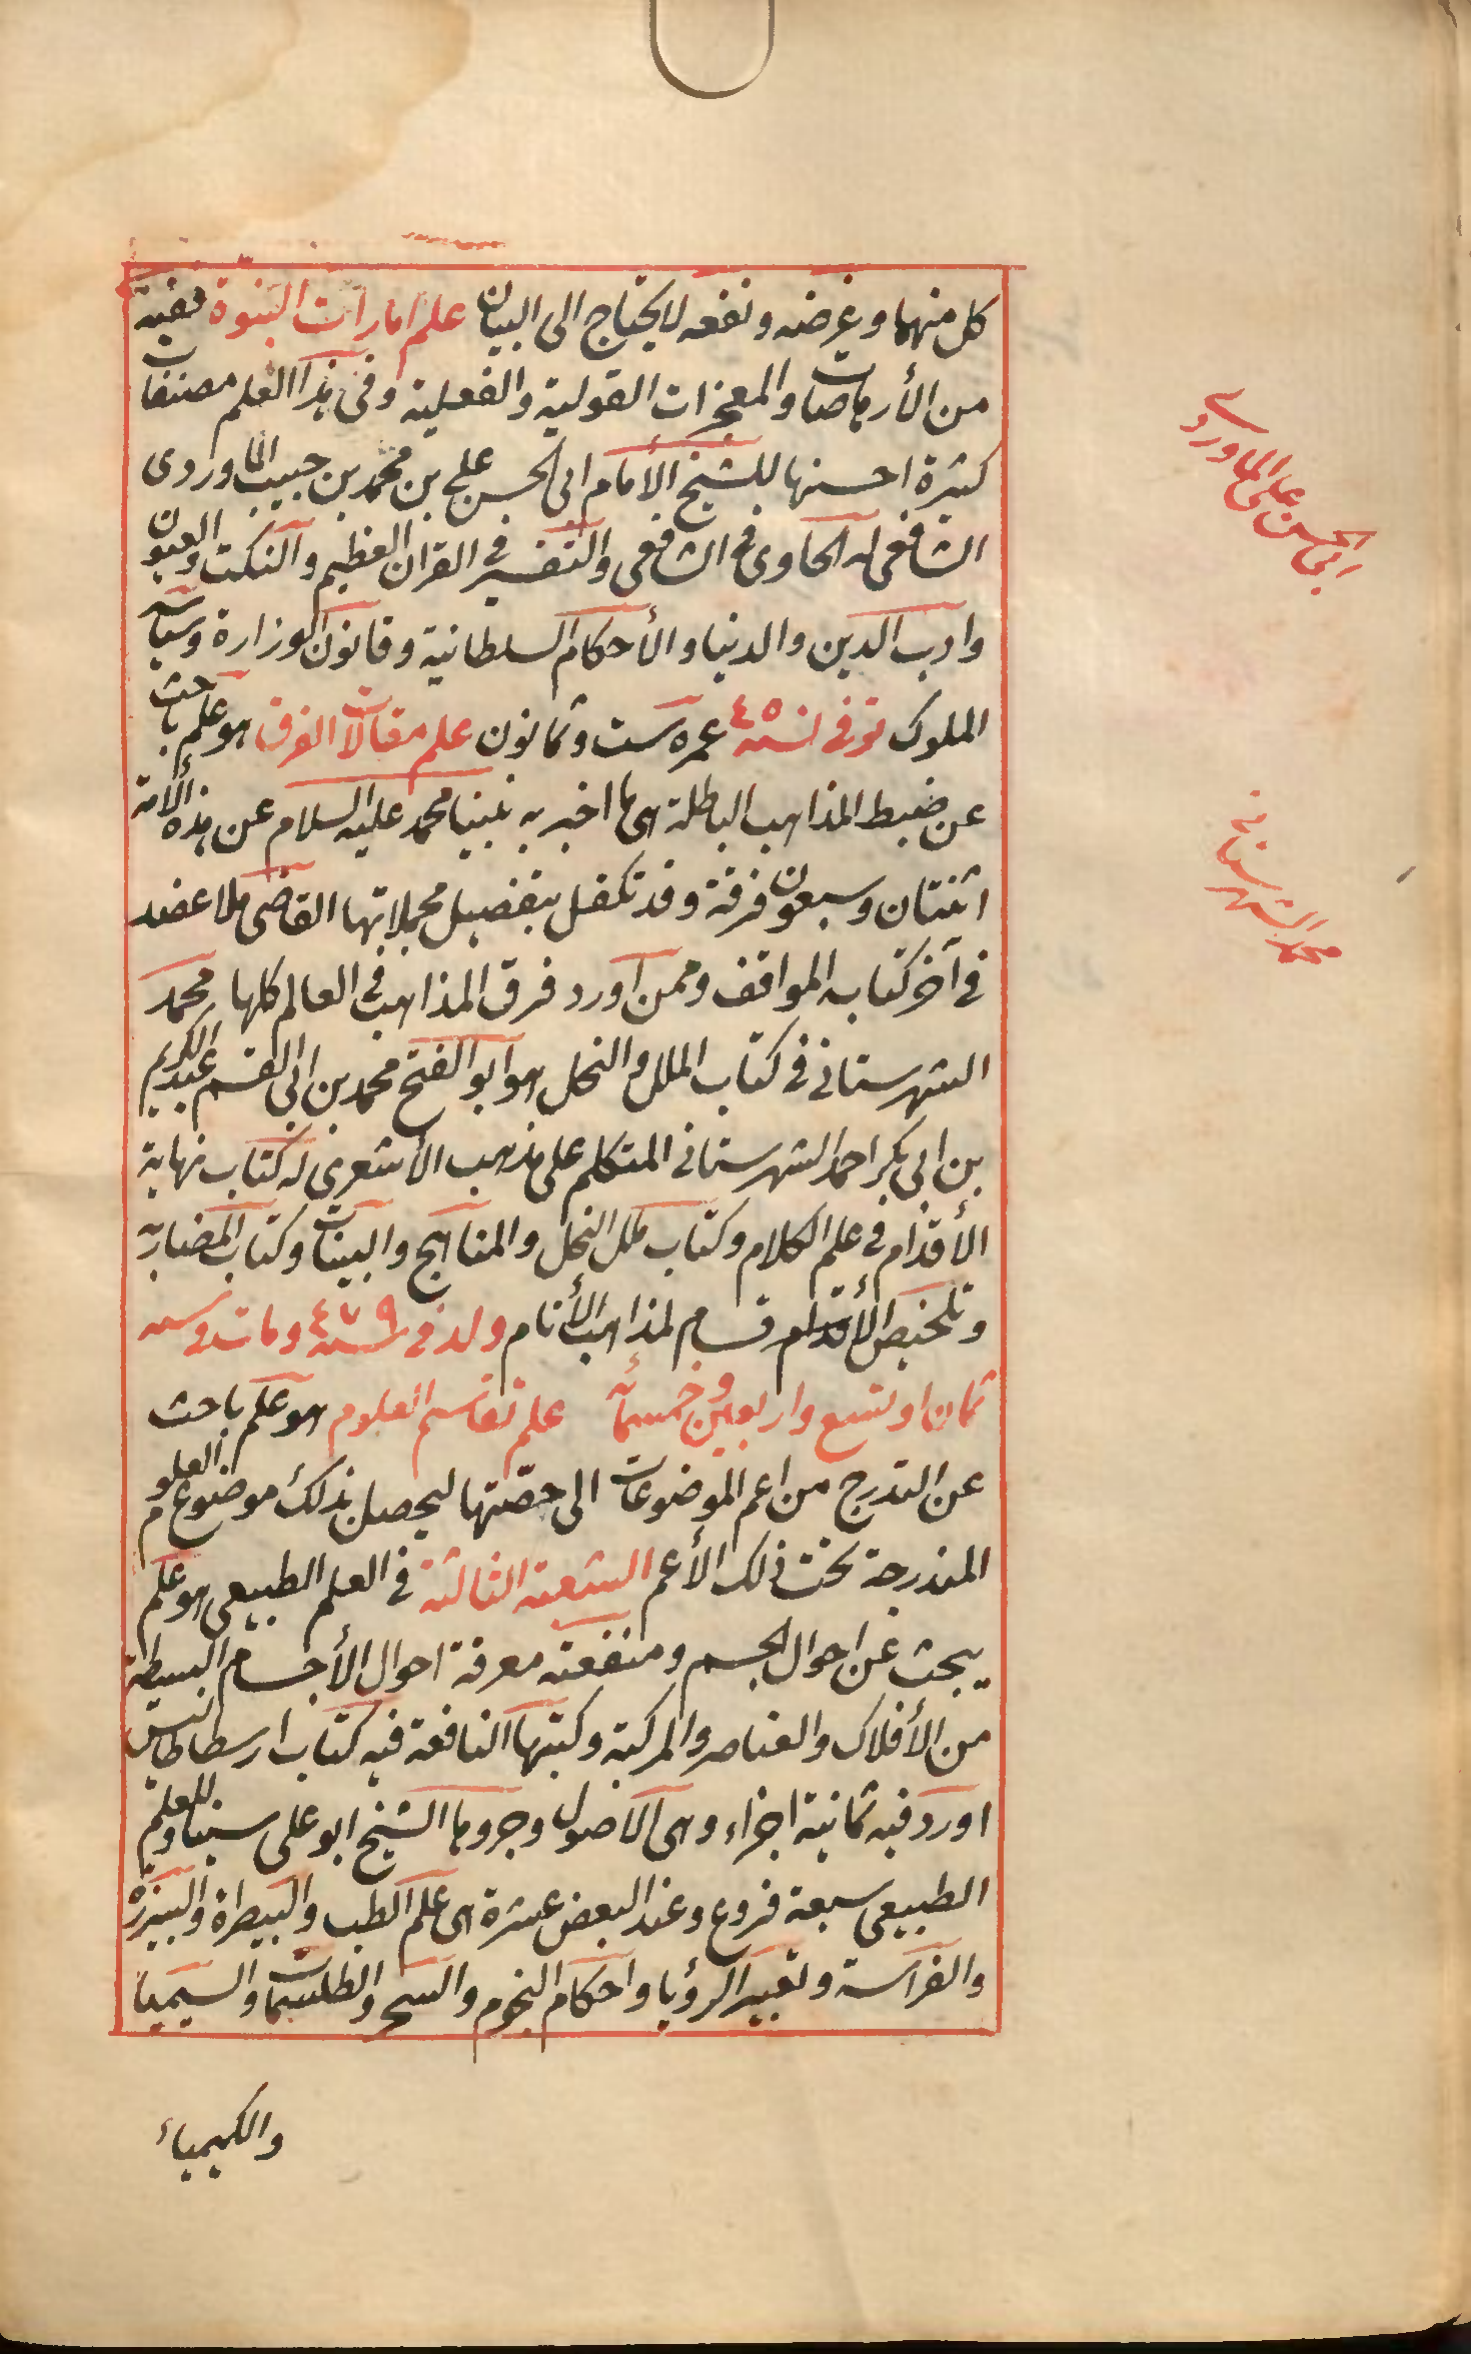 كل منهما وغرضه ونفعه لا يحتاج الى البيان علم امارات النبوة ففيه
من الأرهاصات والمعجزات القولية والفعلية وفى هذا العلم مصنفات
كثيرة احسنها للشيخ الأمام ابى الحسن على بن محمد بن حبيب الماوردى
الشافعى له الحاوى فى الشافعى والتفسير فى القران العظيم والنكت والعيون
وادب الدين والدنيا والأحكام السلطانية وقانون الوزارة وسياسة
الملوك توفى لسنة ٤٥ عمره ست وثمانون علم مقالات الفرق هو علم باحث
عن ضبط المذاهب الباطلة هى ما اخبر به نبينا محمد عليه السلام عن هذه الأمة
اثنتان وسبعون فرقة وقد تكفل بتفصيل مجملاتها القاضى ملا عضد
فى آخر كتابه المواقف وممن اورد فرق المذاهب فى العالم كلها محمد
الشهرستانى فى كتاب الملل والنحل هو ابو الفتح محمد بن ابى القسم عبد الكريم
بن ابى بكر احمد الشهرستانى المتكلم على مذهب الأشعرى له كتاب نهاية
الأقدام فى علم الكلام وكتاب ملل النحل والمناهج والبينات وكتاب المضاربة
وتلخيص الأقسام لمذاهب الأنام ولد فى سنة ٤٧٩ ومات فى سنة
ثمان او تسع واربعين وخمسمائة علم تقاسيم العلوم هو علم باحث
عن التدرج من اعم الموضوعات الى حصّتها ليحصل بذلك موضوع العلوم
المندرجة تحت ذلك الأعم الشعبة الثالثة فى العلم الطبيعى هو علم
يبحث عن احوال الجسم ومنفعته معرفة احوال الأجسام البسيطة
من الأفلاك والعناصر والمركبة وكتبها النافعة فيه كتاب ارسطاطاليس
اورد فيه ثمانية اجزاء وهى الاصول وجردها الشيخ ابو على سينا وللعلم
الطبيعى سبعة فروع وعند البعض عشرة هى علم الطب والبيطرة والبيزرة
والفراسة وتعبير الرؤيا واحكام النجوم والسحر والطلسمات والسيميا
والكيمياء
ابى الحسن على الماوردى
محمد الشهرستانى